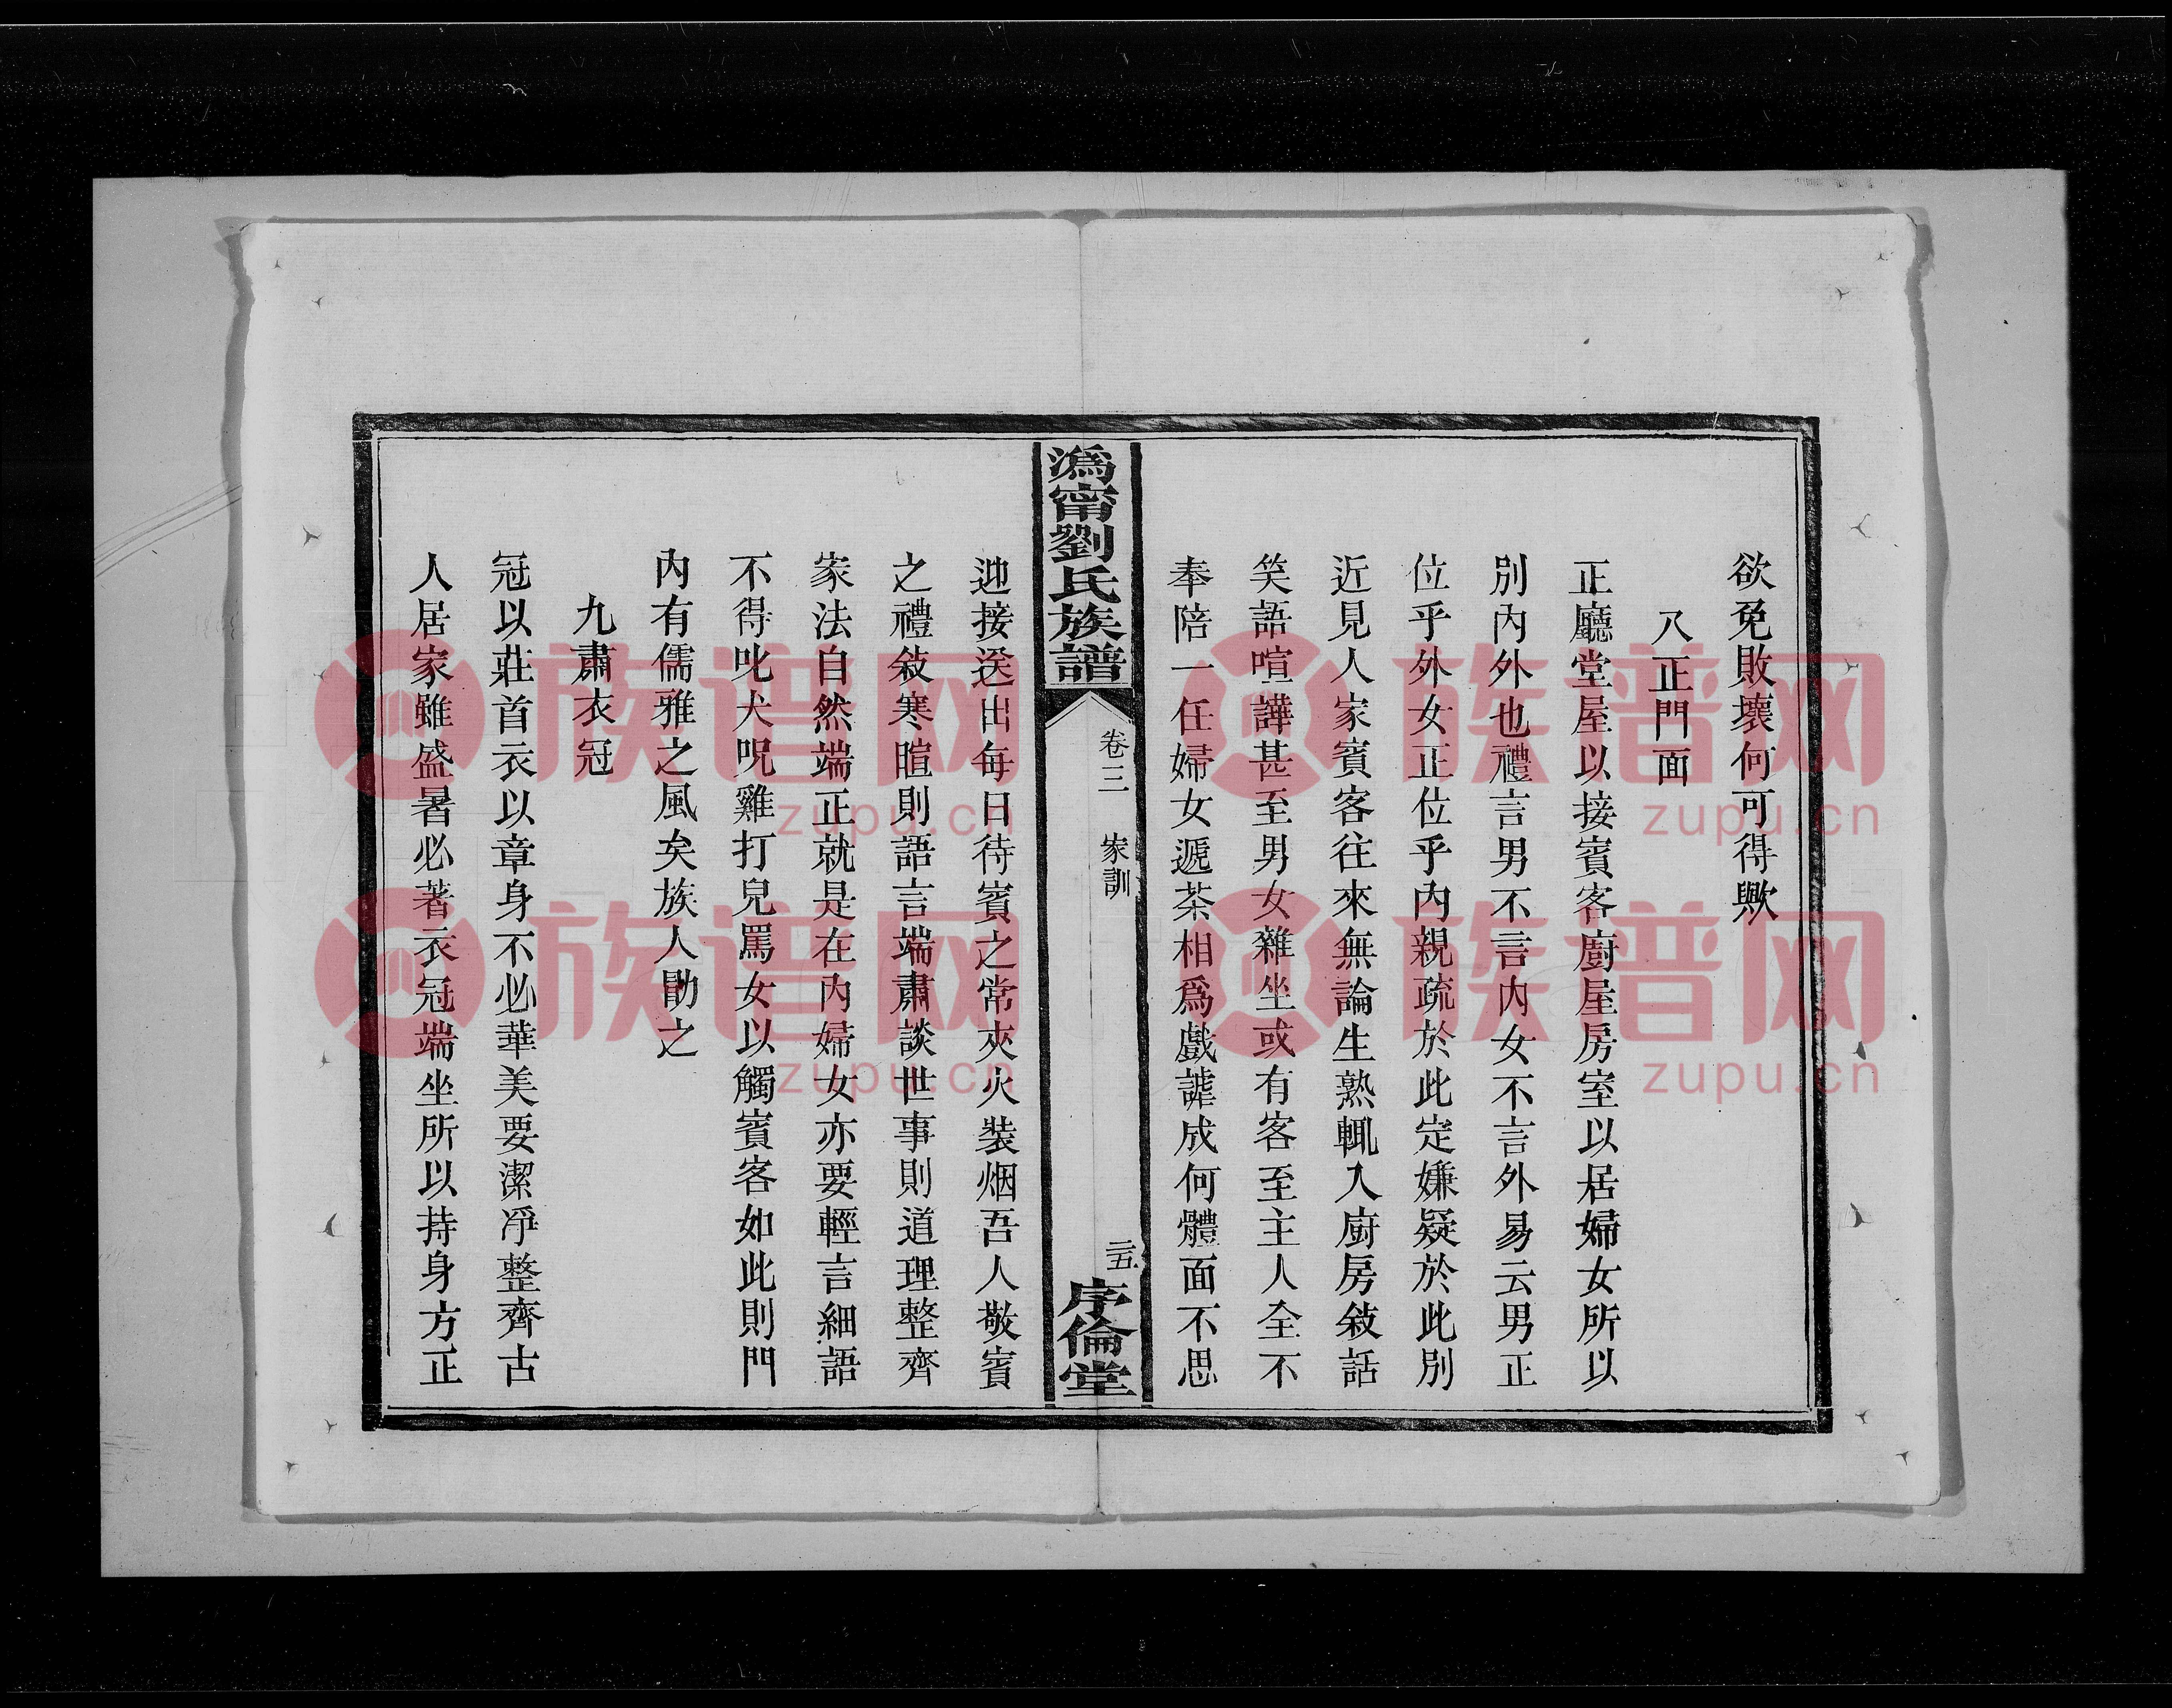 欲免敗壞何可得歟
八正門面
正廳堂屋以接賓客廚屋房室以居婦女所以
別內外也禮言男不言內女不言外易云男正
位乎外女正位乎內親疏於此定嫌疑於此別
近見人家賓客往來無論生熟輒入廚房敘話
笑語喧譁甚至男女雜坐或有客至主人全不
奉陪一任婦女遞茶相爲戲謔成何體面不思
溈甯劉氏族譜
卷三
家訓
二五
序倫堂
迎接送出每日待賓之常夾火裝烟吾人敬賓
之禮敘寒暄則語言端肅談世事則道理整齊
家法自然端正就是在內婦女亦要輕言細語
不得叱犬呪雞打兒罵女以觸賓客如此則門
內有儒雅之風矣族人勖之
九肅衣冠
冠以莊首衣以章身不必華美要潔淨整齊古
人居家雖盛暑必著衣冠端坐所以持身方正
族谱网
zupu.cn
族谱网
zupu.cn
族谱网
zupu.cn
族谱网
zupu.cn